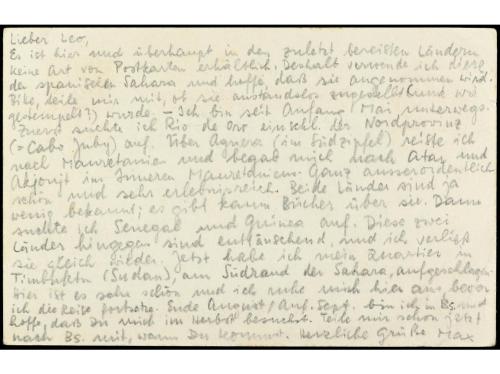 Lieber Leo,
Es ist hier und überhaupt in den zuletzt bereisten Ländern
keine Art von Postkarten erhältlich. Deshalb verwende ich diese
der spanischen Sahara und hoffe, daß sie angenommen wird.
Bitte, teile mir mit, ob sie anstandslos zugestellt (und wo
gestempelt?) wurde. – Ich bin seit Anfang Mai unterwegs.
Zuerst suchte ich Rio de Oro einschl. der Nordprovinz
(= Cabo Juby) auf. Über Aguera (im Südzipfel) reiste ich
nach Mauretanien und begab mich nach Atar und
Akjoujt im Inneren Mauretaniens. Ganz ausserordentlich
schön und sehr erlebnisreich. Beide Länder sind ja
wenig bekannt; es gibt kaum Bücher über sie. Dann
suchte ich Senegal und Guinea auf. Diese zwei
Länder hingegen sind enttäuschend, und ich verließ
sie gleich wieder. Jetzt habe ich mein Quartier in
Timbuktu (Sudan), am Südrand der Sahara, aufgeschlagen.
Hier ist es sehr schön und ich ruhe mich hier aus, bevor
ich die Reise fortsetze. Ende August/Anf. Sept. bin ich in Bs. und
hoffe, daß Du mich im Herbst besuchst. Teile mir schon jetzt
nach Bs. mit, wann Du kommst. Herzliche Grüße Max